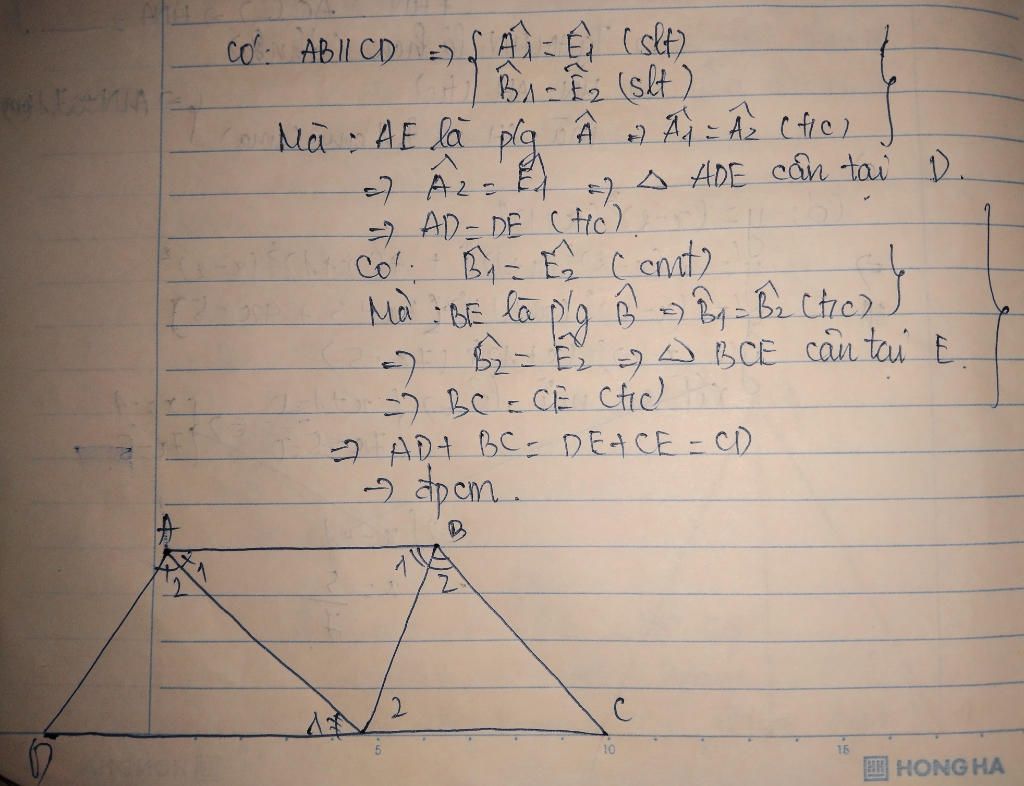 Có: AB // CD => { Â1 = Ê1 (slt)
B̂1 = Ê2 (slt)
Mà : AE là p/g Â => Â1 = Â2 (t/c)
=> Â2 = Ê1 => △ ADE cân tại D.
=> AD = DE (t/c)
Có: B̂1 = Ê2 (cmt)
Mà : BE là p/g B̂ => B̂1 = B̂2 (t/c)
=> B̂2 = Ê2 => △ BCE cân tại E.
=> BC = CE (t/c)
=> AD + BC = DE + CE = CD
-> đpcm.
A B
1 2 1 2
1 2 C
D
5 10 15
HONG HA